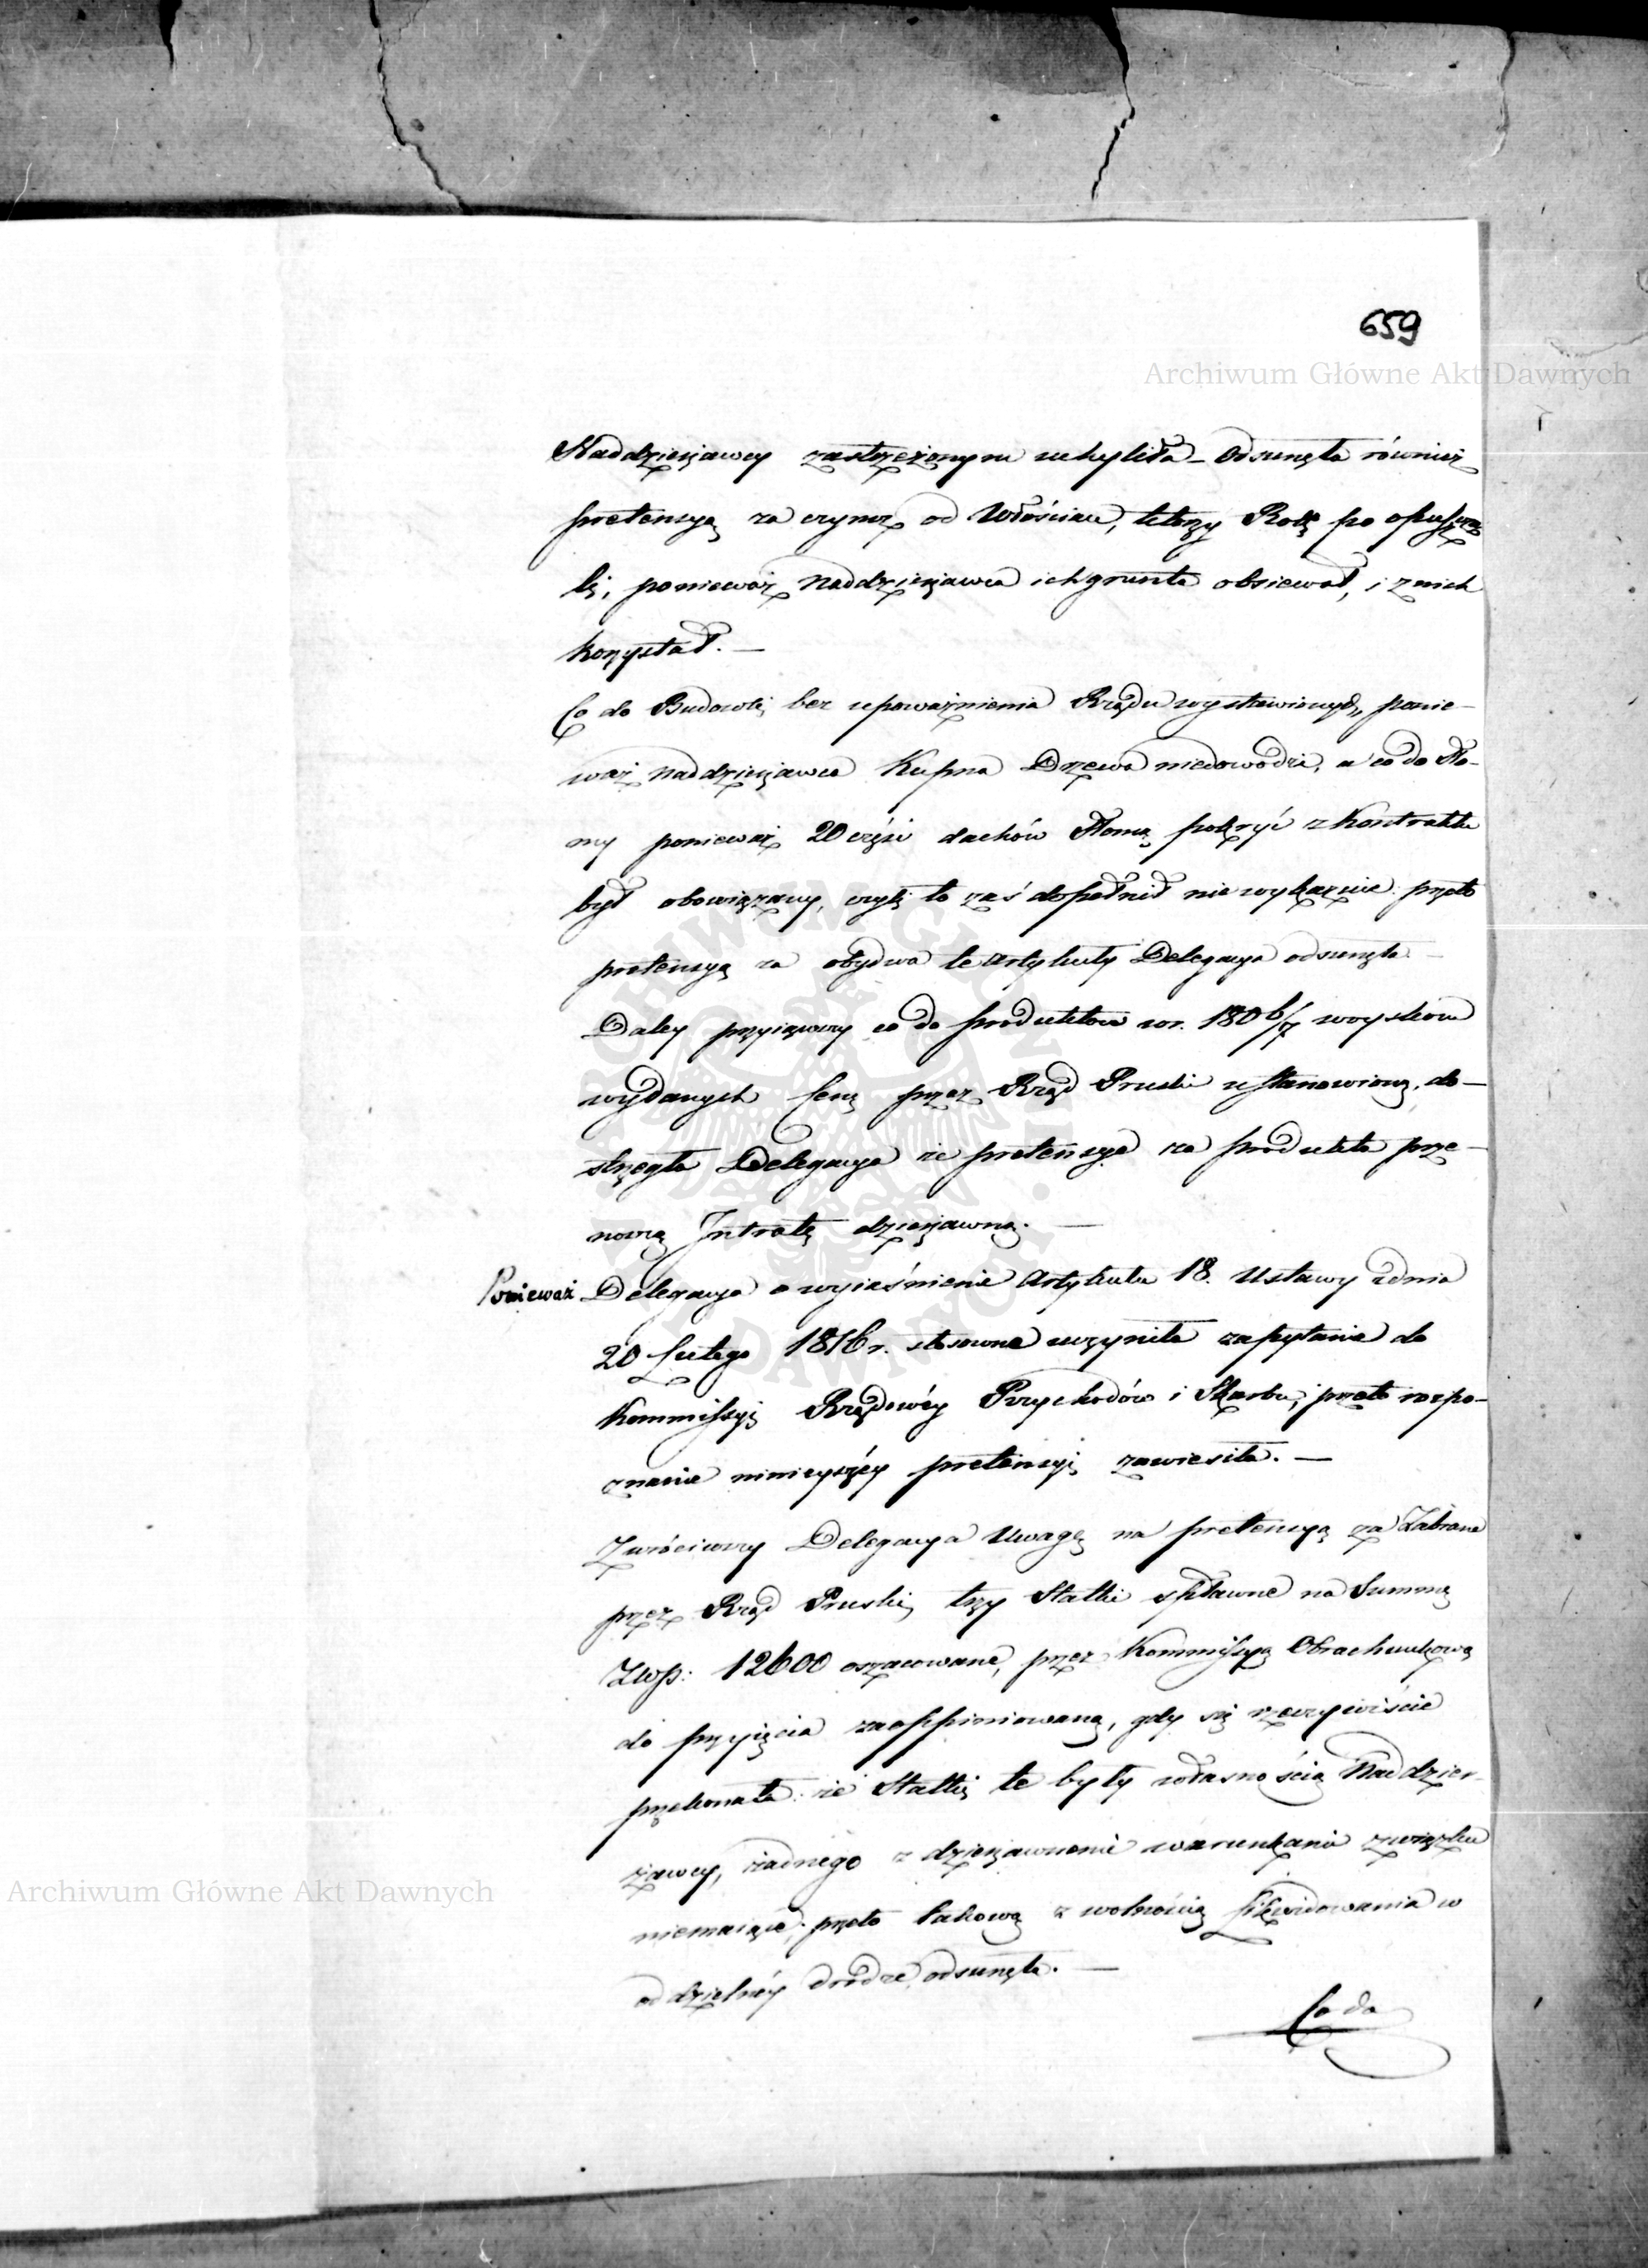 659
Archiwum Główne Akt Dawnych
Naddzierżawcy zastrzeżonym uchyliła – Odsunęła również
pretensyą za czynsz od Włościan, którzy Rolę po opuszcza
li, ponieważ Naddzierżawca ich grunta obsiewał, i z nich
korzystał. —
Co do Budowli bez upoważnienia Rządu wystawionych, ponie-
waż Naddzierżawca Kupna Drzewa niedowodzi, a co do Sło-
my ponieważ 20 części dachów Słomą pokryć z Kontraktu
był obowiązany, czyli to zaś dopełnił nie wykazuie przeto
pretensyą za obydwa te artykuły Delegacya odsunęła. —
Daley przyiąwszy co do produktów w r. 1806/7 woysku
wydanych Cenę przez Rząd Pruski ustanowioną, do-
strzegła Delegacya że pretensya za produkta prze-
nosi Intratę dzierżawną. —
Ponieważ Delegacya o wyiaśnienie Artykułu 18. Ustawy z dnia
20 Lutego 1816 r. stosowne uczyniła zapytanie do
Kommissyi Rządowéy Przychodów i Skarbu, przeto rozpo-
znanie ninieyszéy pretensyi zawiesiła. —
Zwróciwszy Delegacya Uwagę na pretensyą za Zabrane
przez Rząd Pruski, trzy Statki spławne na Summę
Złłp: 12600 oszacowane, przez Kommissyą Obrachunkową
do przyięcia zaoppiniowaną, gdy się rzeczywiście
przekonała: że Statki te były własnością Naddzier-
żawcy, żadnego z dzierżawnemi warunkami związku
niemaiące, przeto takową z wolnością likwidowania w
oddzielnéy drodze, odsunęła. —
Co do
Archiwum Główne Akt Dawnych